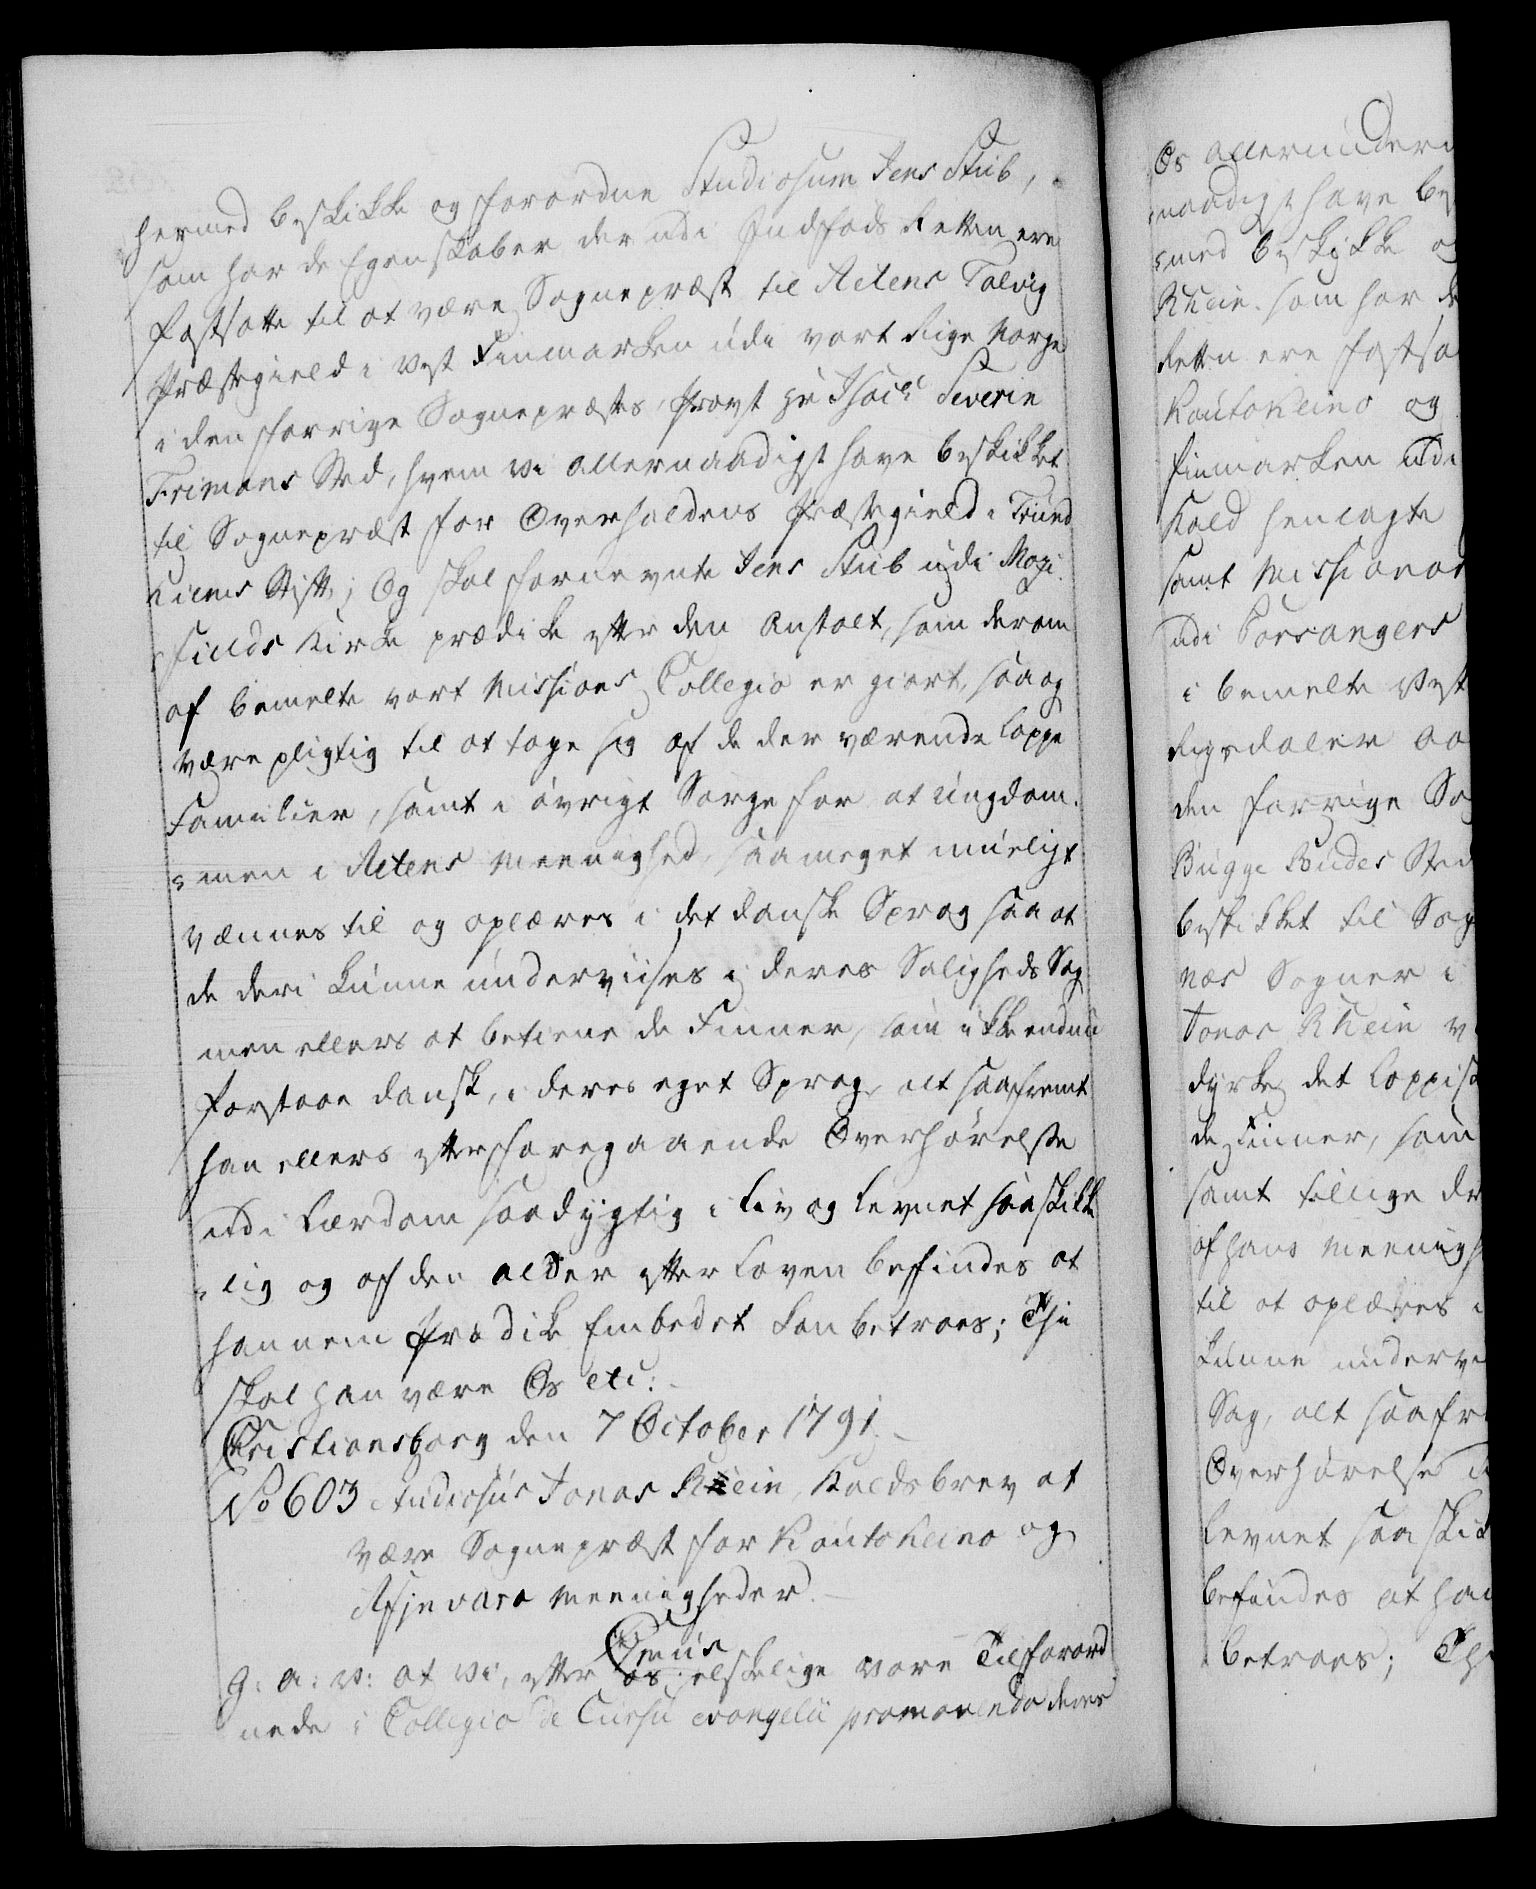 hermed beskikke og forordne Studiosum Jens Stub,
som har de Egenskaber der udi Indføds Retten ere
fastsatte til at være Sognepræst til Altens Talvig
Præstegield i Vest Finmarken udi vort Rige Norge
i den forrige Sognepræstes, Provst Hr Isach Severin
Frimans Sted, hvem vi allernaadigst have beskikket
til Sognepræst for Overhaldens Præstegield i Trund
hiems Stift; Og skal fornevnte Jens Stub udi Mazi
fields Kirke prædike efter den Anstalt, som derom
af bemelte vort Missions Collegio er giort, saa og
være pligtig til at tage sig af de der værende Lappe
Familier, samt i øvrigt Sørge for at Ungdom-
men i Altens Meenighed, saa meget mueligt
vænnes til og oplæres i det danske Sprog saa at
de deri kunne underviises i deres Saligheds Sag
men ellers at betiene de Finner, som ikke endnu
forstaae dansk, i deres eget Sprog, alt saafremt
han ellers efter foregaaende Overhørelse
udi Lærdom saa dygtig i Liv og Levnet saa skikke
lig og af den Alder efter Loven befindes at
hannem Prædike Embedet kan betroes; Thi
skal han være Os etc:
Christiansborg den 7 October 1791.
No 603 Studiosus Jonas Rhein, Kaldsbrev at
være Sognepræst for Kautokeino og
Afjevara Meenigheder.
G: A: V: at vi, efter Os elskelige vore Tilforord
nede i Collegio de Cursu evangelii promovendo deres
Os allerunder
naadigst have be
med beskikke og
Rhein som har de
Retten ere fastsa
Kautokeino og
Finmarken udi
Kald henlagte
samt Missionai
udi Porsangers
i bemelte Vest
Rigsdaler aa
den forrige So
Bugge Rindes Sted
beskikket til Sog
næs Sogner i
Jonas Rhein v
dyrke det Lappis
de Finner, som
samt tillige dr
af hans Meenigh
til at oplæres i
kunne underve
Sag, alt saafr
Overhørelse
Levnet saa skik
befindes at han
betroes; Thi